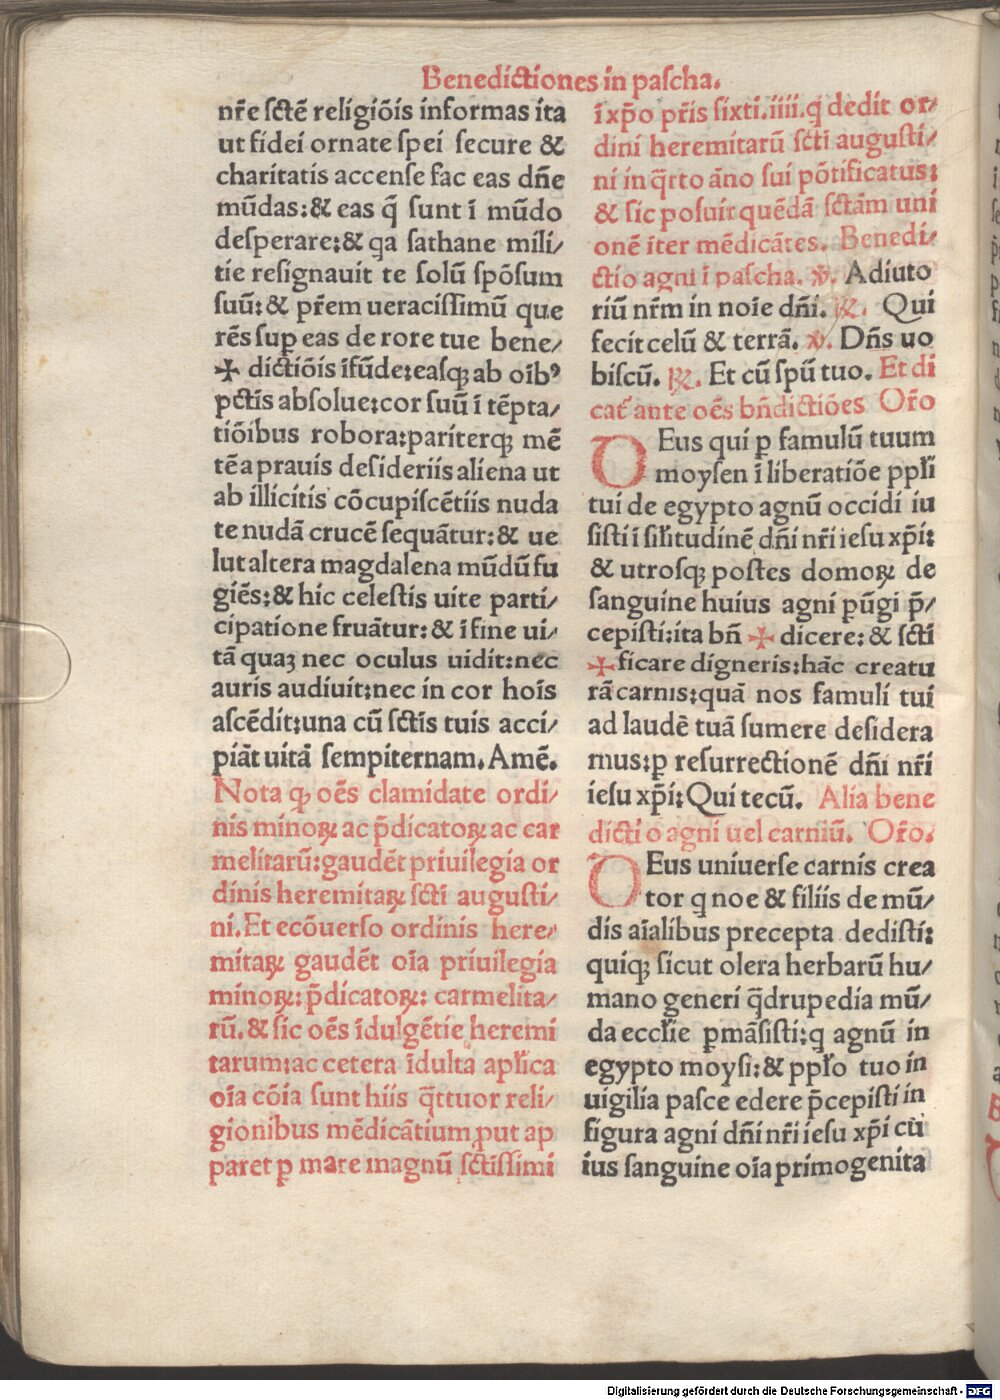 Benedictiones in paſcha.
nr̄e ſctē religiōis informas ita
ut fidei ornate ſpei ſecure &
charitatis accenſe fac eas dn̄e
mūdas:& eas q̄ ſunt ī mūdo
deſperare:& qa ſathane mili/
tie reſignauit te ſolū ſpōſum
ſuū:& pr̄em ueraciſſimū que
rēs ſuꝑ eas de rore tue bene/
✠ dictiōis īfūde:eaſqꝫ ab oībꝰ
pctīs abſolue:cor ſuū ī tēpta/
tiōibus robora:pariterqꝫ mē
tē a prauis deſideriis aliena ut
ab illicitis cōcupiſcētiis nuda
te nudā crucē ſequātur:& ue
lut altera magdalena mūdū fu
giēs:& hic celeſtis uite parti/
cipatione fruātur:& ī fine ui/
tā quaꝫ nec oculus uidit:nec
auris audiuit:nec in cor hoīs
aſcēdit:una cū ſctīs tuis acci/
piāt uitā ſempiternam.Amē.
Nota qꝫ oēs clamidate ordi/
nis minoꝝ ac p̄dicatoꝝ ac car
melitarū:gaudēt priuilegia or
dinis heremitaꝝ ſcti auguſti/
ni.Et ecōuerſo ordinis here/
mitaꝝ gaudēt oīa priuilegia
minoꝝ: p̄dicatoꝝ: carmelita/
rū.& ſic oēs īdulgētie heremi
tarum:ac cetera īdulta apl̄ica
oīa cōīa ſunt hiis q̄ttuor reli/
gionibus mēdicātium,put ap
paret ꝑ mare magnū ſctīſſimi
ī xp̄o pr̄is ſixti.iiii.q̇ dedit or/
dini heremitarū ſcti auguſti/
ni in q̄rto āno ſui pōtificatus:
& ſic poſuit quēdā ſctām uni
onē īter mēdicātes. Benedi/
ctio agni ī paſcha. ℣. Adiuto
riū nr̄m in noīe dn̄i. ℟. Qui
fecit celū & terrā. ℣. Dn̄s uo
biſcū. ℟. Et cū ſpū tuo. Et di
cat̄ ante oēs bn̄dictiōes Or̄o
DEus qui ꝑ famulū tuum
moyſen ī liberatiōe ppl̄i
tui de egypto agnū occidi iu
ſiſti ī ſil̄itudinē dn̄i nr̄i ieſu xp̄i:
& utroſqꝫ poſtes domoꝝ de
ſanguine huius agni pūgi p̄/
cepiſti:ita bn̄ ✠ dicere: & ſcti
✠ ficare digneris:hāc creatu
rā carnis:quā nos famuli tui
ad laudē tuā ſumere deſidera
mus:ꝑ reſurrectionē dn̄i nr̄i
ieſu xp̄i:Qui tecū. Alia bene
dicti o agni uel carniū. Or̄o.
DEus uniuerſe carnis crea
tor q̇ noe & filiis de mū/
dis aīalibus precepta dediſti:
quiqꝫ ſicut olera herbarū hu/
mano generi q̄drupedia mū/
da eccl̄ie ꝑmāſiſti:q̇ agnū in
egypto moyſi:& ppl̄o tuo in
uigilia paſce edere p̄cepiſti in
figura agni dn̄i nr̄i ieſu xp̄i cu
ius ſanguine oīa primogenita
Digitalisierung gefördert durch die Deutsche Forschungsgemeinschaft - DFG